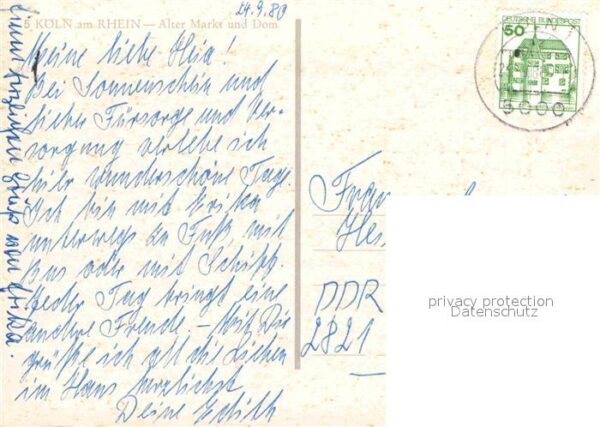 24.9.80
5 KÖLN am RHEIN — Alter Markt und Dom
Meine liebe
Bei Sonnenschein und
lieber Fürsorge und Ver-
sorgung verlebe ich
hier wunderschöne Tage.
Ich bin mit Erika
unterwegs zu Fuß, mit
Bus oder mit Schiff.
Jeder Tag bringt eine
andere Freude. – Mit Dir
grüße ich all die Lieben
im Haus herzlichst
Deine Edith
Gruß von Erika.
DEUTSCHE BUNDESPOST
50
5000
Frau
DDR
2821
privacy protection
Datenschutz